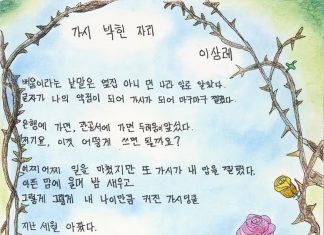 가시 박힌 자리
이상례
배움이라는 낱말은 옆집 아니 먼 나라 일로 알았다.
글자가 나의 약점이 되어 가시가 되어 마구마구 찔렀다.
은행에 가면, 관공서에 가면 두려움이 앞섰다.
저기요, 이것 어떻게 쓰면 될까요?
어찌어찌 일을 마쳤지만 또 가시가 내 맘을 찔렀다.
아픈 맘에 울며 밤 새우고
그렇게 그렇게 내 나이만큼 커진 가시덩쿨
지난 세월 아팠다.